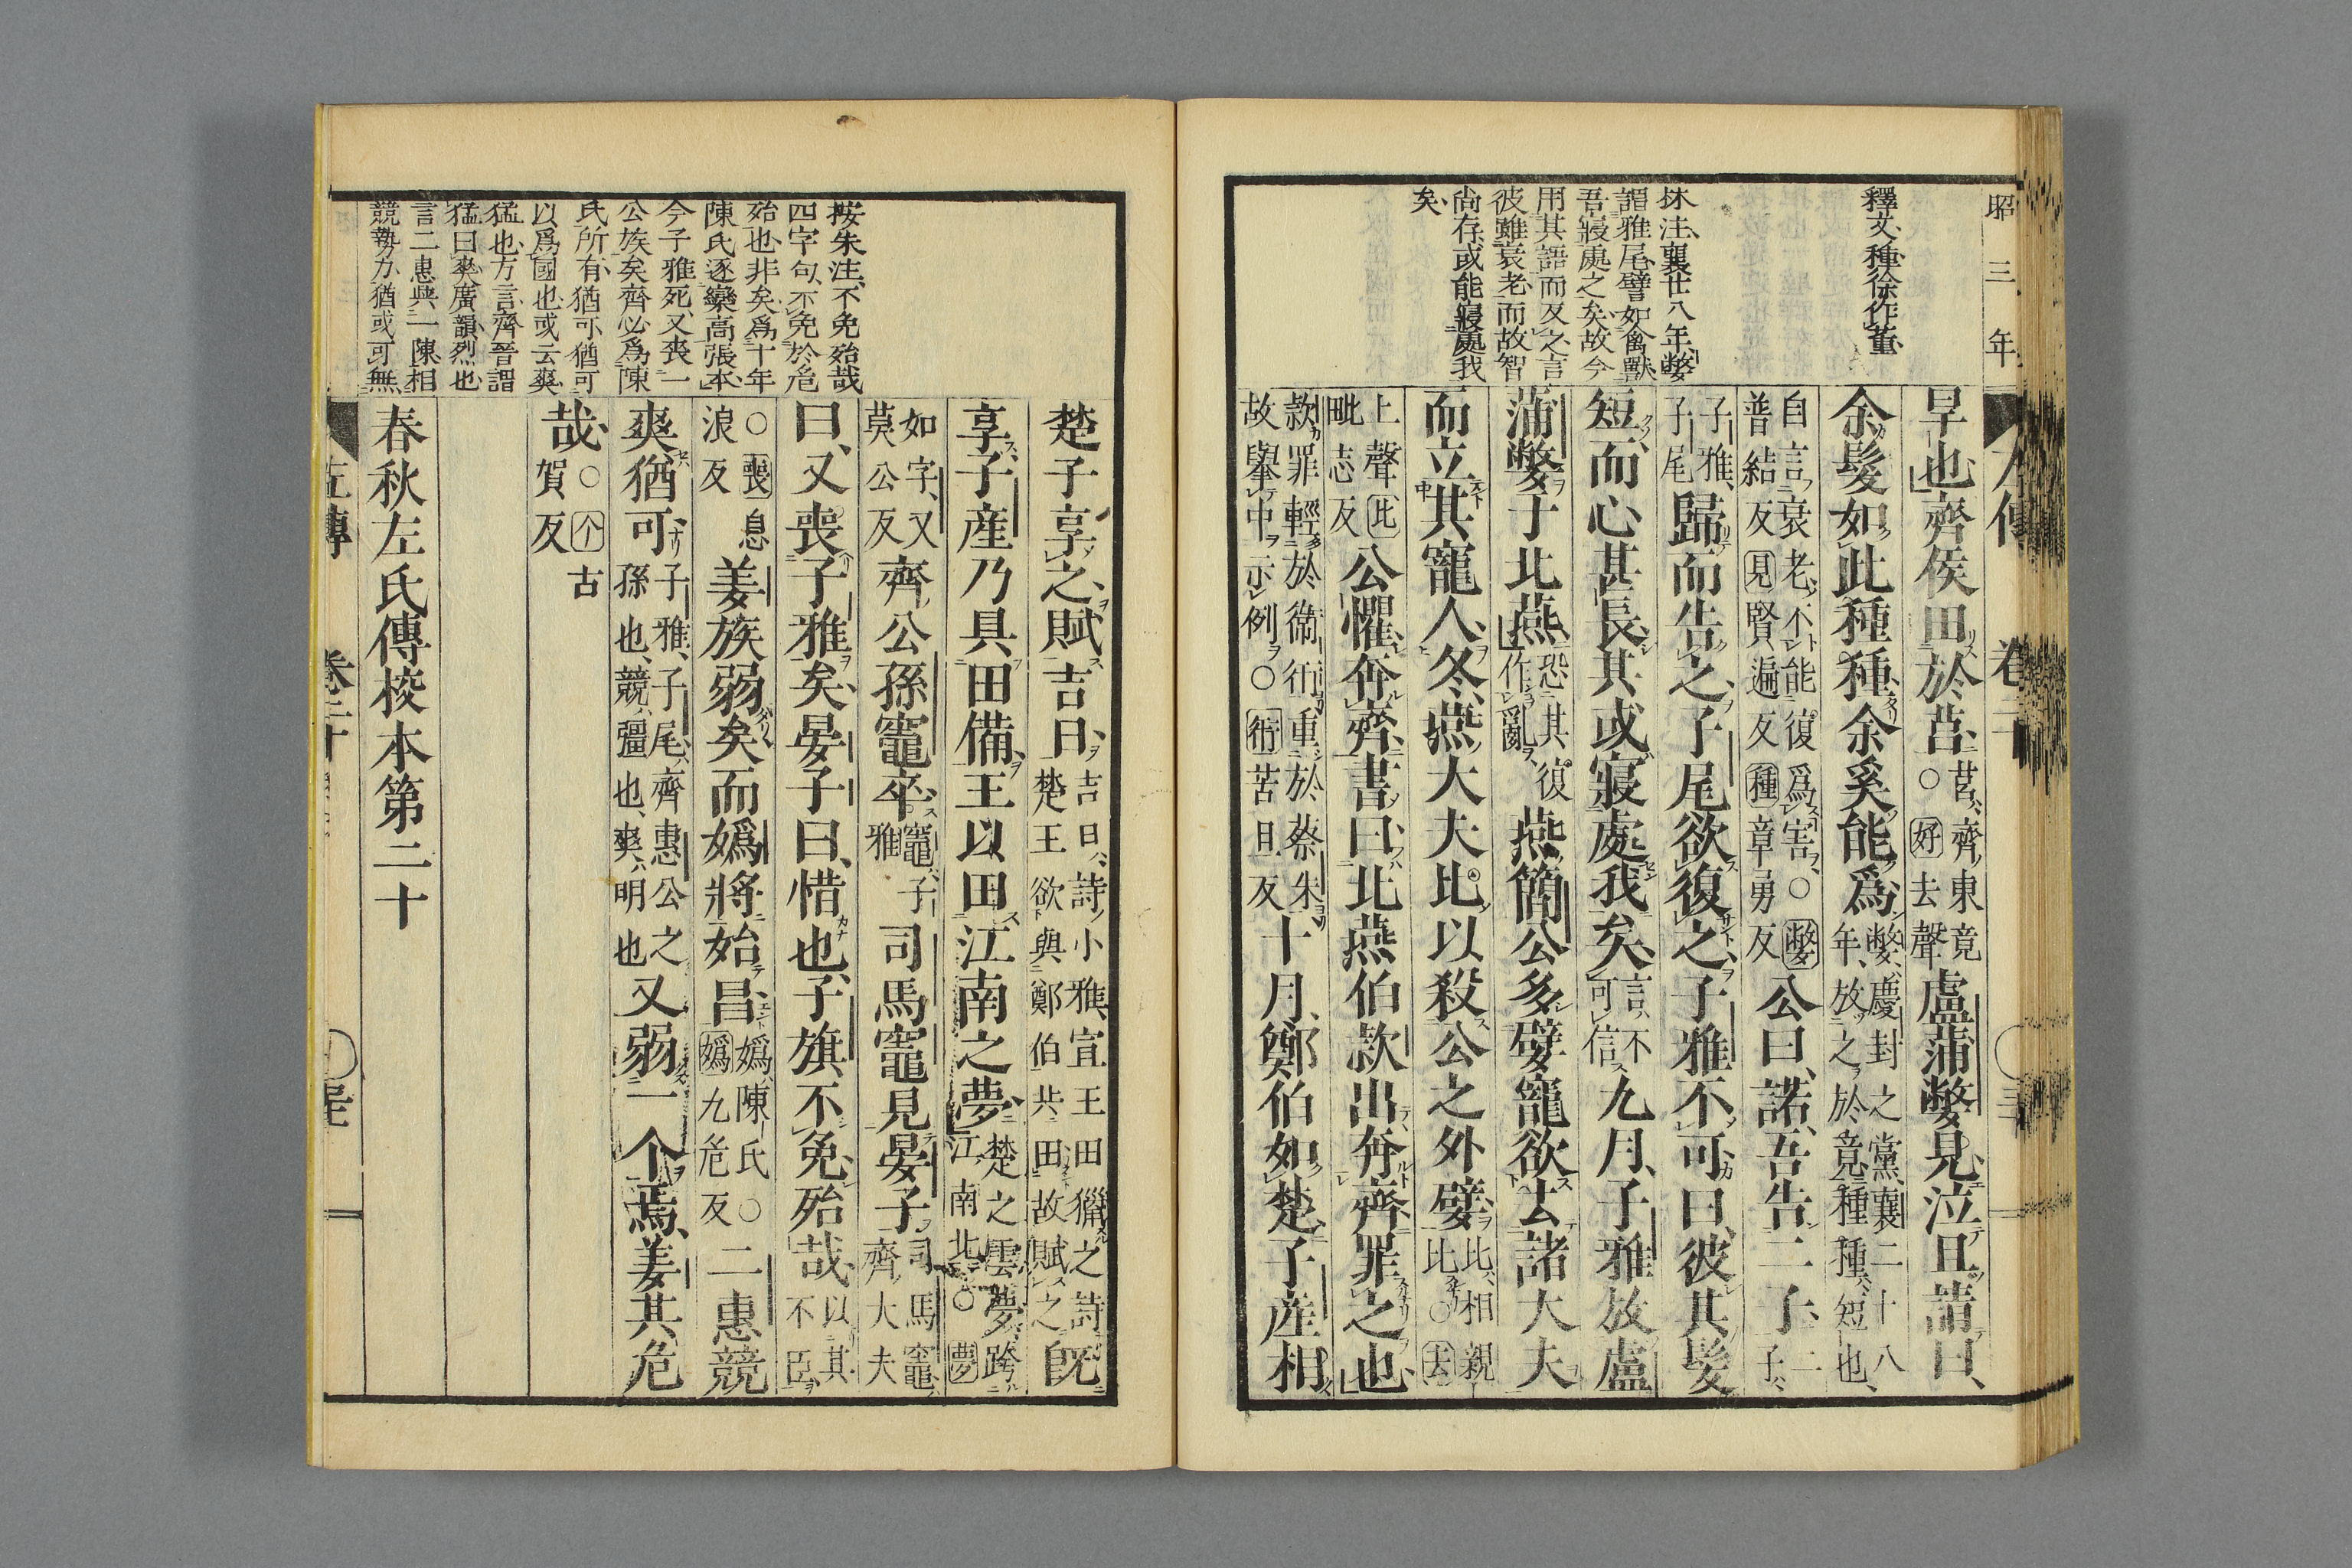 昭三年
釋文、種徐作董、
抹注、襄廿八年、嫳
謂雅尾、譬如禽獸、
吾寢處之矣故今
用其語而反之言
彼雖衰老、而故智
尚存、或能寢處我
矣、
旱也、齊侯田於莒、莒、齊東竟○好去聲盧蒲嫳見、泣且請曰、
余髮如此種種、余奚能爲、嫳、慶封之黨、襄二十八年、放之於竟種種、短也、
自言衰老、不能復爲害、○嫳普結反見賢遍反種章勇反公曰、諾、吾告二子、二子、
子雅、子尾歸而告之、子尾欲復之、子雅不可曰、彼其髮
短、而心甚長、其或寢處我矣、言、不可信九月、子雅放盧
蒲嫳于北燕、恐其復作亂燕簡公多嬖寵、欲去諸大夫
而立其寵人、冬、燕大夫比以殺公之外嬖、比、相親比○去
上聲比毗志反公懼、奔齊、書曰、北燕伯款出奔齊、罪之也、
款罪輕於衞衎、重於蔡朱、故擧中示例○衎苦旦反十月、鄭伯如楚、子産相
按朱注、不免殆哉
四字句、不免於危
殆也非矣、爲十年
陳氏逐欒高張本
今子雅死、又喪一
公族矣齊必爲陳
氏所有、猶可、猶可
以爲國也、或云爽
猛也、方言、齊晉謂
猛曰爽、廣韻、烈也
言二惠與二陳相
競勢力、猶或可無
楚子享之、賦吉日、吉日、詩小雅、宣王田獵之詩楚王欲與鄭伯共田、故賦之既
享、子産乃具田備、王以田江南之夢、楚之雲夢、跨江南北○夢
如字、又莫公反齊公孫竈卒、竈、子雅司馬竈見晏子司馬竈、齊大夫
曰、又喪子雅矣、晏子曰、惜也、子旗不免、殆哉、以其不臣
○喪息浪反姜族弱矣、而嬀將始昌、嬀、陳氏○嬀九危反二惠競
爽、猶可、子雅、子尾、齊惠公之孫也、競、彊也、爽、明也又弱一个焉、姜其危
哉、○个古賀反
春秋左氏傳校本第二十